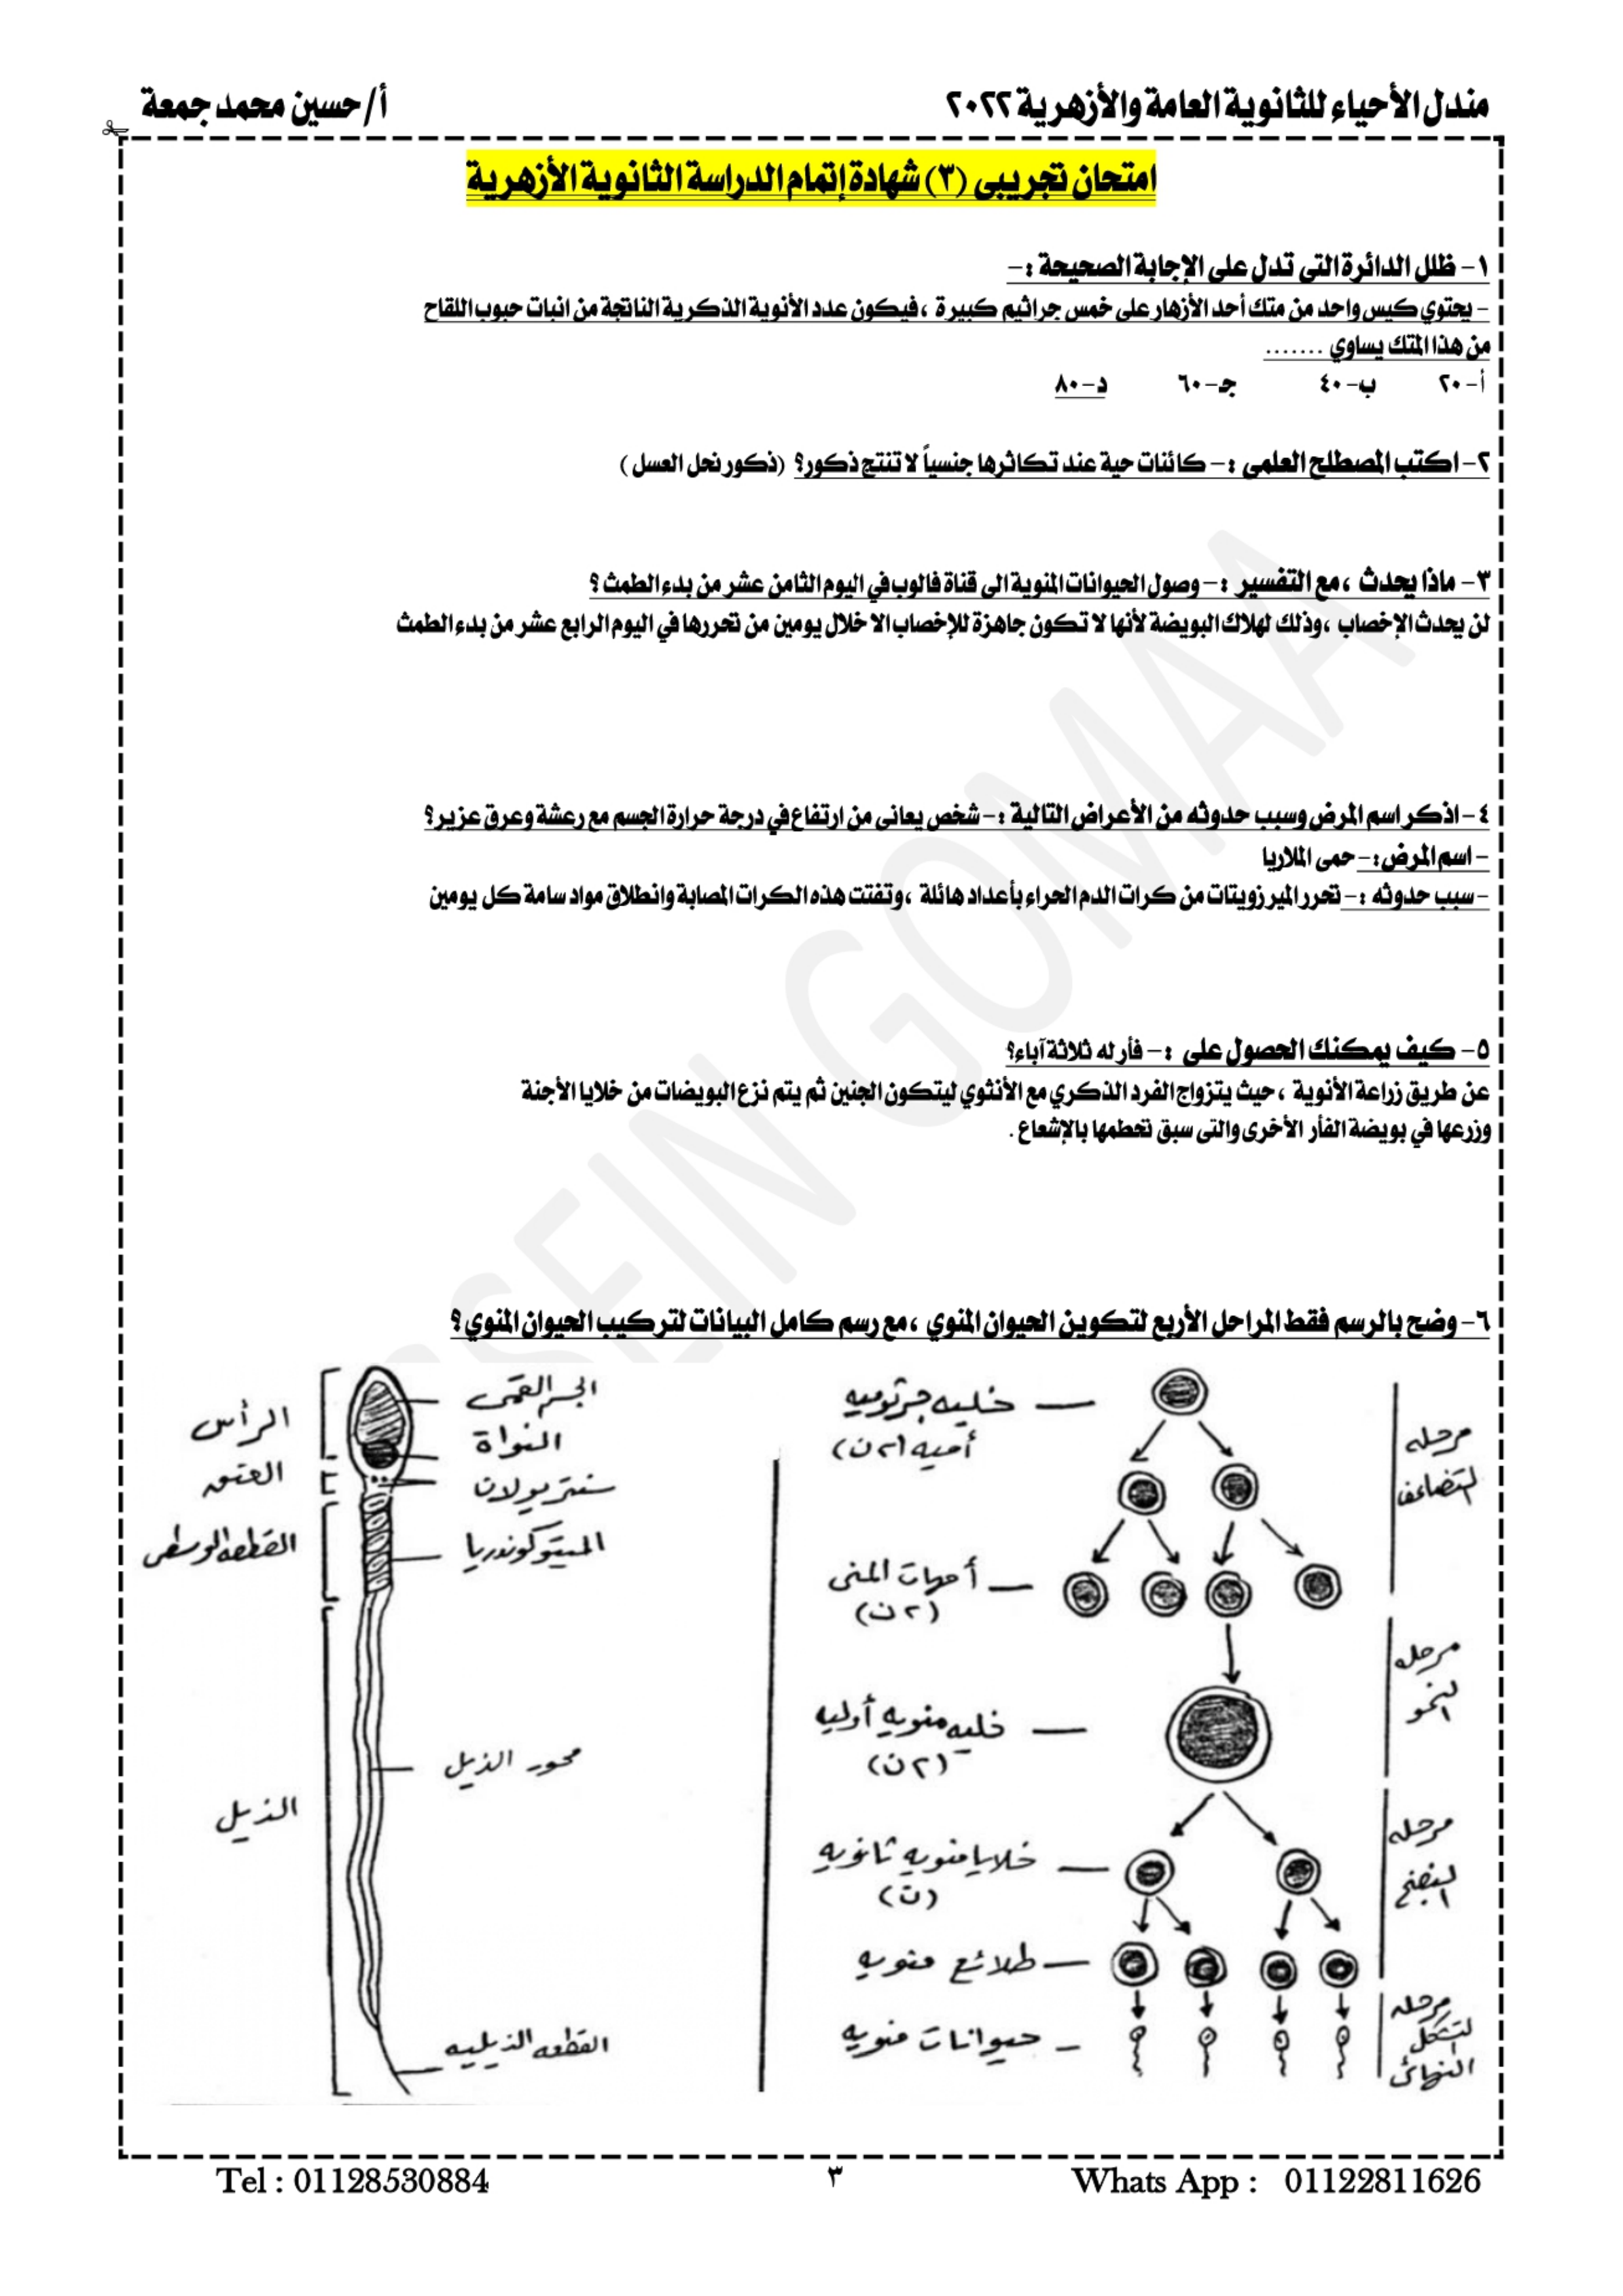 مندل الأحياء للثانوية العامة والأزهرية ٢٠٢٢
أ/ حسين محمد جمعة
امتحان تجريبى (٣) شهادة إتمام الدراسة الثانوية الأزهرية
١- ظلل الدائرة التى تدل على الإجابة الصحيحة :-
- يحتوي كيس واحد من متك أحد الأزهار على خمس جراثيم كبيرة ، فيكون عدد الأنوية الذكرية الناتجة من انبات حبوب اللقاح
من هذا المتك يساوي .......
أ- ٢٠ ب- ٤٠ جـ- ٦٠ د- ٨٠
٢- اكتب المصطلح العلمى :- كائنات حية عند تكاثرها جنسياً لا تنتج ذكور؟ (ذكور نحل العسل )
٣- ماذا يحدث ، مع التفسير :- وصول الحيوانات المنوية الى قناة فالوب في اليوم الثامن عشر من بدء الطمث ؟
لن يحدث الإخصاب ، وذلك لهلاك البويضة لأنها لا تكون جاهزة للإخصاب الا خلال يومين من تحررها في اليوم الرابع عشر من بدء الطمث
٤- اذكر اسم المرض وسبب حدوثه من الأعراض التالية :- شخص يعانى من ارتفاع في درجة حرارة الجسم مع رعشة وعرق عزير؟
- اسم المرض :- حمى الملاريا
- سبب حدوثه :- تحرر الميرزويتات من كرات الدم الحراء بأعداد هائلة ، وتفتت هذه الكرات المصابة وانطلاق مواد سامة كل يومين
٥- كيف يمكنك الحصول على :- فأر له ثلاثة آباء؟
عن طريق زراعة الأنوية ، حيث يتزواج الفرد الذكري مع الأنثوي ليتكون الجنين ثم يتم نزع البويضات من خلايا الأجنة
وزرعها في بويضة الفأر الأخرى والتى سبق تحطمها بالإشعاع .
٦- وضح بالرسم فقط المراحل الأربع لتكوين الحيوان المنوي ، مع رسم كامل البيانات لتركيب الحيوان المنوي ؟
مرحله
التضاعف
خليه جرثوميه
أميه (٢ن)
أمهات المنى
(٢ن)
مرحله
النمو
خليه منويه أوليه
(٢ن)
مرحله
النضج
خلايا منويه ثانويه
(ن)
طلائع منويه
مرحله
التشكل
النهائى
حيوانات منويه
الجسم القمى
النواة
سنتريولان
الميتوكوندريا
محور الذيل
القطعه الذيليه
الرأس
العنق
القطعه الوسطى
الذيل
SSEIN GOMAA
Whats App : 01122811626
٣
Tel : 01128530884